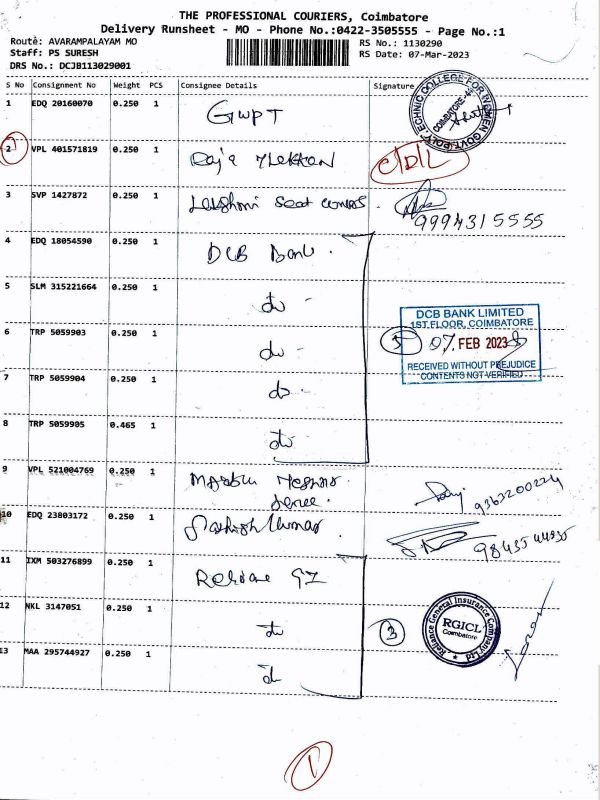 THE PROFESSIONAL COURIERS, Coimbatore
Delivery Runsheet - MO - Phone No.:0422-3505555 - Page No.:1
Route: AVARAMPALAYAM MO
RS No.: 1130290
Staff: PS SURESH
RS Date: 07-Mar-2023
DRS No.: DCJB113029001
S No Consignment No Weight PCS Consignee Details Signature
1 EDQ 20160070 0.250 1 GWPT
COIMBATORE-4
2 VPL 401571819 0.250 1
C/D/L
3 SVP 1427872 0.250 1 Lakshmi Seat
9994315555
4 EDQ 18054590 0.250 1 DCB Bank.
5 SLM 315221664 0.250 1 do -
DCB BANK LIMITED
1ST.FLOOR, COIMBATORE
6 TRP 5059903 0.250 1 do -
5 07.FEB 2023
RECEIVED WITHOUT PREJUDICE
CONTENTS NOT VERIFIED
7 TRP 5059904 0.250 1 do -
8 TRP 5059905 0.465 1 do -
9 VPL 521004769 0.250 1
9363200224
10 EDQ 23803172 0.250 1 Sathish Kumar
11 IXM 503276899 0.250 1 Reliance GI
12 NKL 3147051 0.250 1 do
3
Reliance General Insurance Company Ltd
RGICL
Coimbatore
13 MAA 295744927 0.250 1 do
1